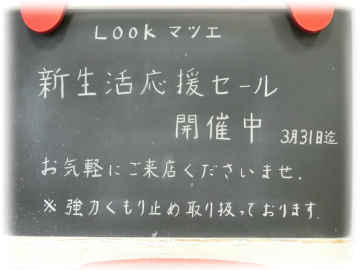 LOOK マツエ
新生活応援セール
開催中 3月31日迄
お気軽にご来店くださいませ.
※ 強力くもり止め取り扱っております.